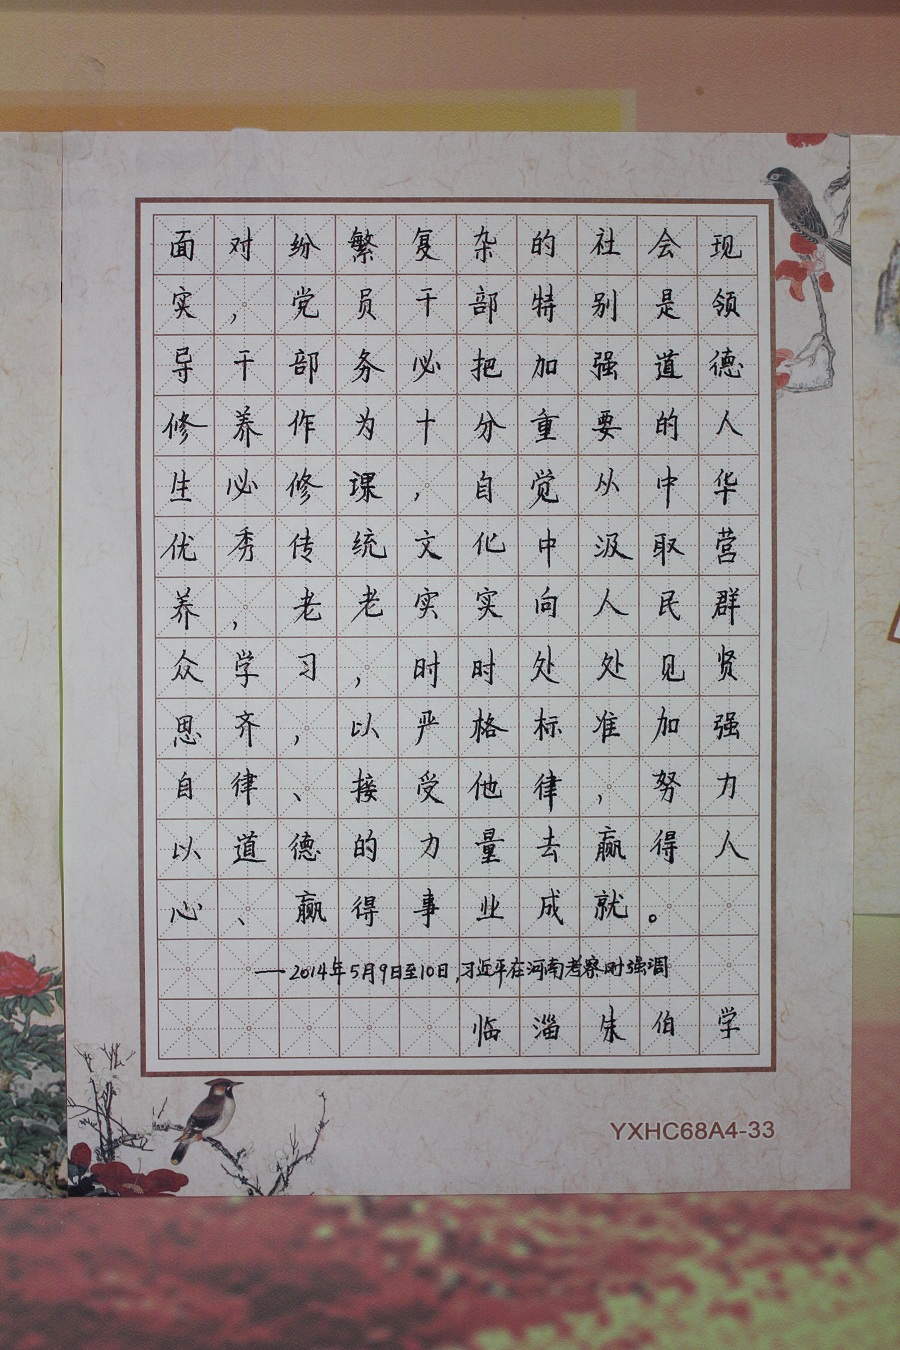 面对纷繁复杂的社会现
实，党员干部特别是领
导干部务必把加强道德
修养作为十分重要的人
生必修课，自觉从中华
优秀传统文化中汲取营
养，老老实实向人民群
众学习，时时处处见贤
思齐，以严格标准加强
自律、接受他律，努力
以道德的力量去赢得人
心、赢得事业成就。
——2014年5月9日至10日,习近平在河南考察时强调
临淄朱伯学
YXHC68A4-33